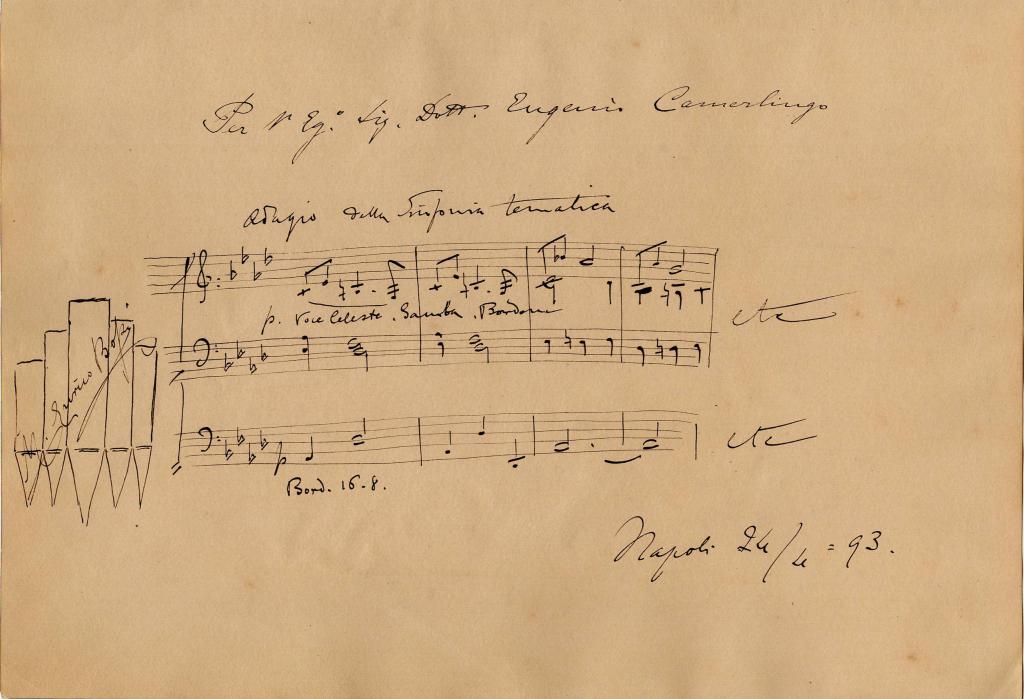 Per l' Eg.º Sig. Dott. Eugenio Camerlingo
Adagio della Sinfonia tematica
p. Voce Celeste. Gamba. Bordone
etc
M. Enrico Bossi
p
etc
Bord. 16-8.
Napoli 24/4 = 93.